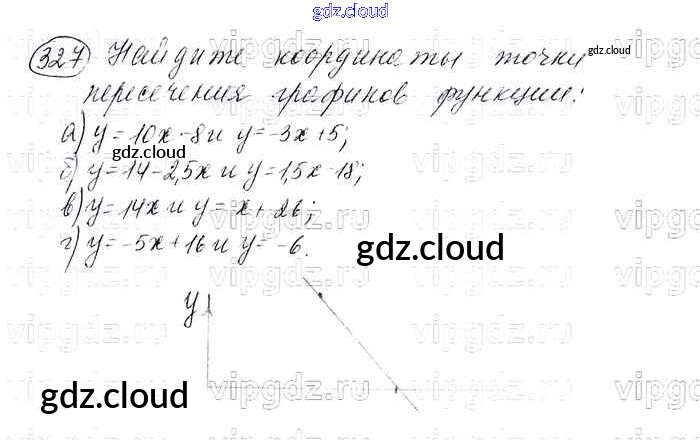 gdz.cloud
327 Найдите координаты точки gdz.cloud
пересечения графиков функции:
а) y=10x-8 и y=-3x+5;
gdz.cloud
б) y=14-2,5x и y=1,5x-18;
в) y=14x и y=x+26;
г) y=-5x+16 и y=-6.
gdz.cloud
y
gdz.cloud
vipgdz.ru